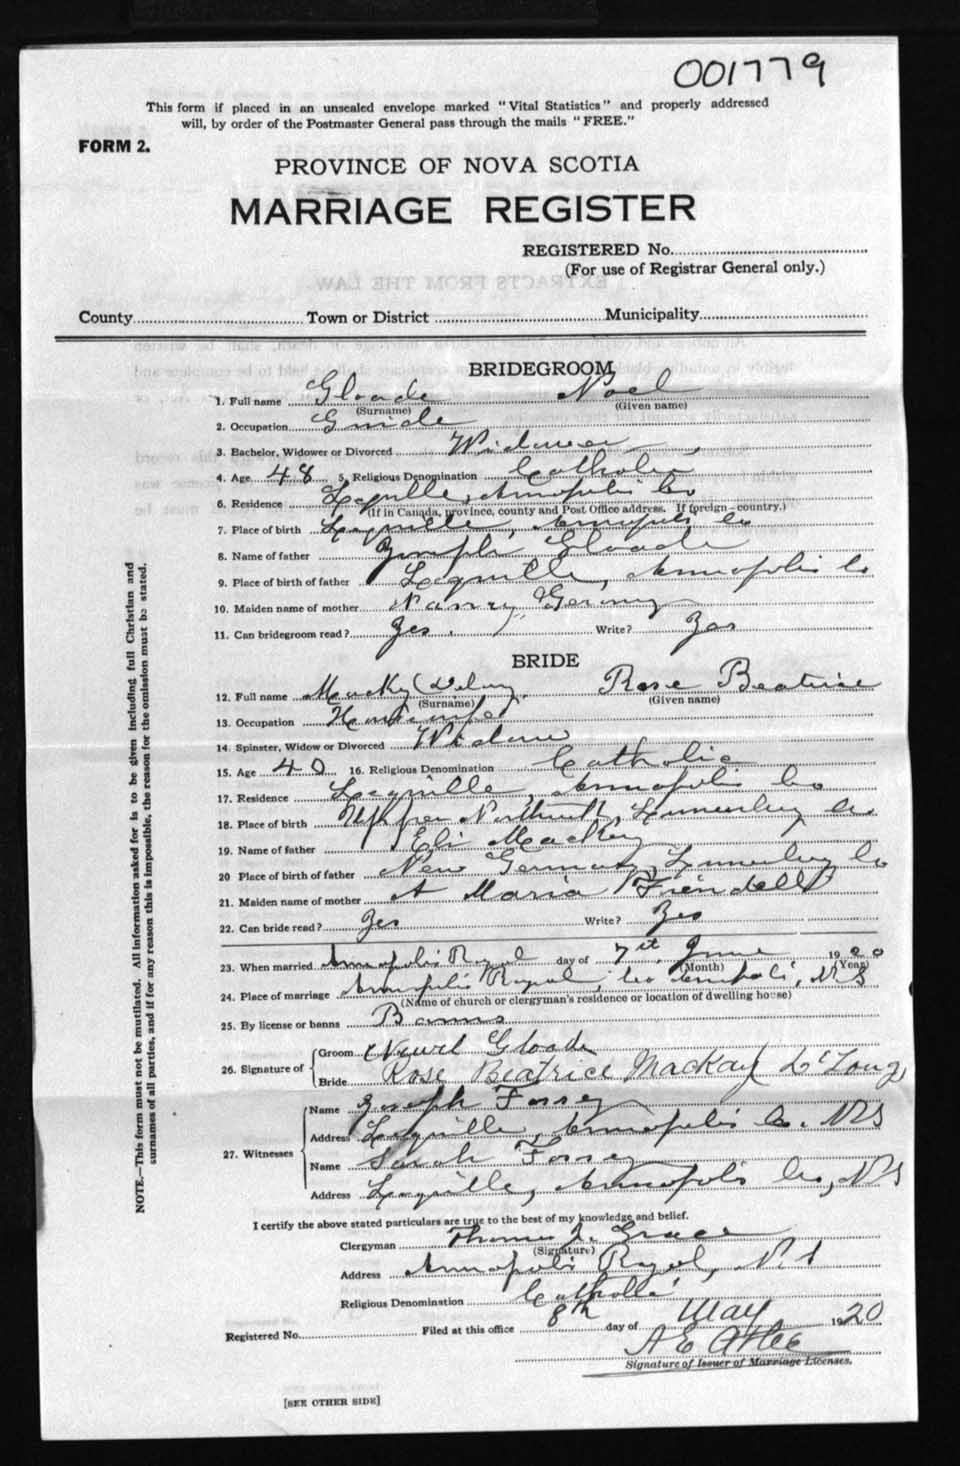 001779
This form if placed in an unsealed envelope marked "Vital Statistics" and properly addressed
will, by order of the Postmaster General pass through the mails "FREE."
FORM 2.
PROVINCE OF NOVA SCOTIA
MARRIAGE REGISTER
REGISTERED No.
(For use of Registrar General only.)
County Town or District Municipality
BRIDEGROOM
1. Full name Gloade Noel
(Surname) (Given name)
2. Occupation Guide
3. Bachelor, Widower or Divorced Widower
4. Age 48 5. Religious Denomination Catholic
6. Residence Lequille, Annapolis Co
(If in Canada, province, county and Post Office address. If foreign—country.)
7. Place of birth Lequille, Annapolis Co
8. Name of father Joseph Gloade
9. Place of birth of father Lequille, Annapolis Co
10. Maiden name of mother Nancy
11. Can bridegroom read? Yes. Write? Yes
BRIDE
12. Full name Rose Beatrice
(Surname) (Given name)
13. Occupation Housewife
14. Spinster, Widow or Divorced Widow
15. Age 40 16. Religious Denomination Catholic
17. Residence Lequille, Annapolis Co
18. Place of birth Upper Northfield, Lunenburg Co
19. Name of father Eli Mackey
20 Place of birth of father New Germany, Lunenburg Co
21. Maiden name of mother Maria
22. Can bride read? Yes Write? Yes
23. When married Annapolis Royal day of 7th June 1920
(Month) (Year)
24. Place of marriage Annapolis Royal, Co Annapolis, N.S
(Name of church or clergyman's residence or location of dwelling house)
25. By license or banns Banns
26. Signature of
Groom Gloade
Bride Rose Beatrice MacKay
27. Witnesses
Name Joseph
Address Lequille, Annapolis Co. N.S
Name Sarah
Address Lequille, Annapolis Co, N.S
I certify the above stated particulars are true to the best of my knowledge and belief.
Clergyman Thomas J. Grace
(Signature)
Address Annapolis Royal, N.S
Religious Denomination Catholic
Registered No. Filed at this office 8th day of May 1920
A E Atlee
Signature of Issuer of Marriage Licenses.
[SEE OTHER SIDE]
NOTE.—This form must not be mutilated. All information asked for is to be given including full Christian and
surnames of all parties, and if for any reason this is impossible, the reason for the omission must be stated.